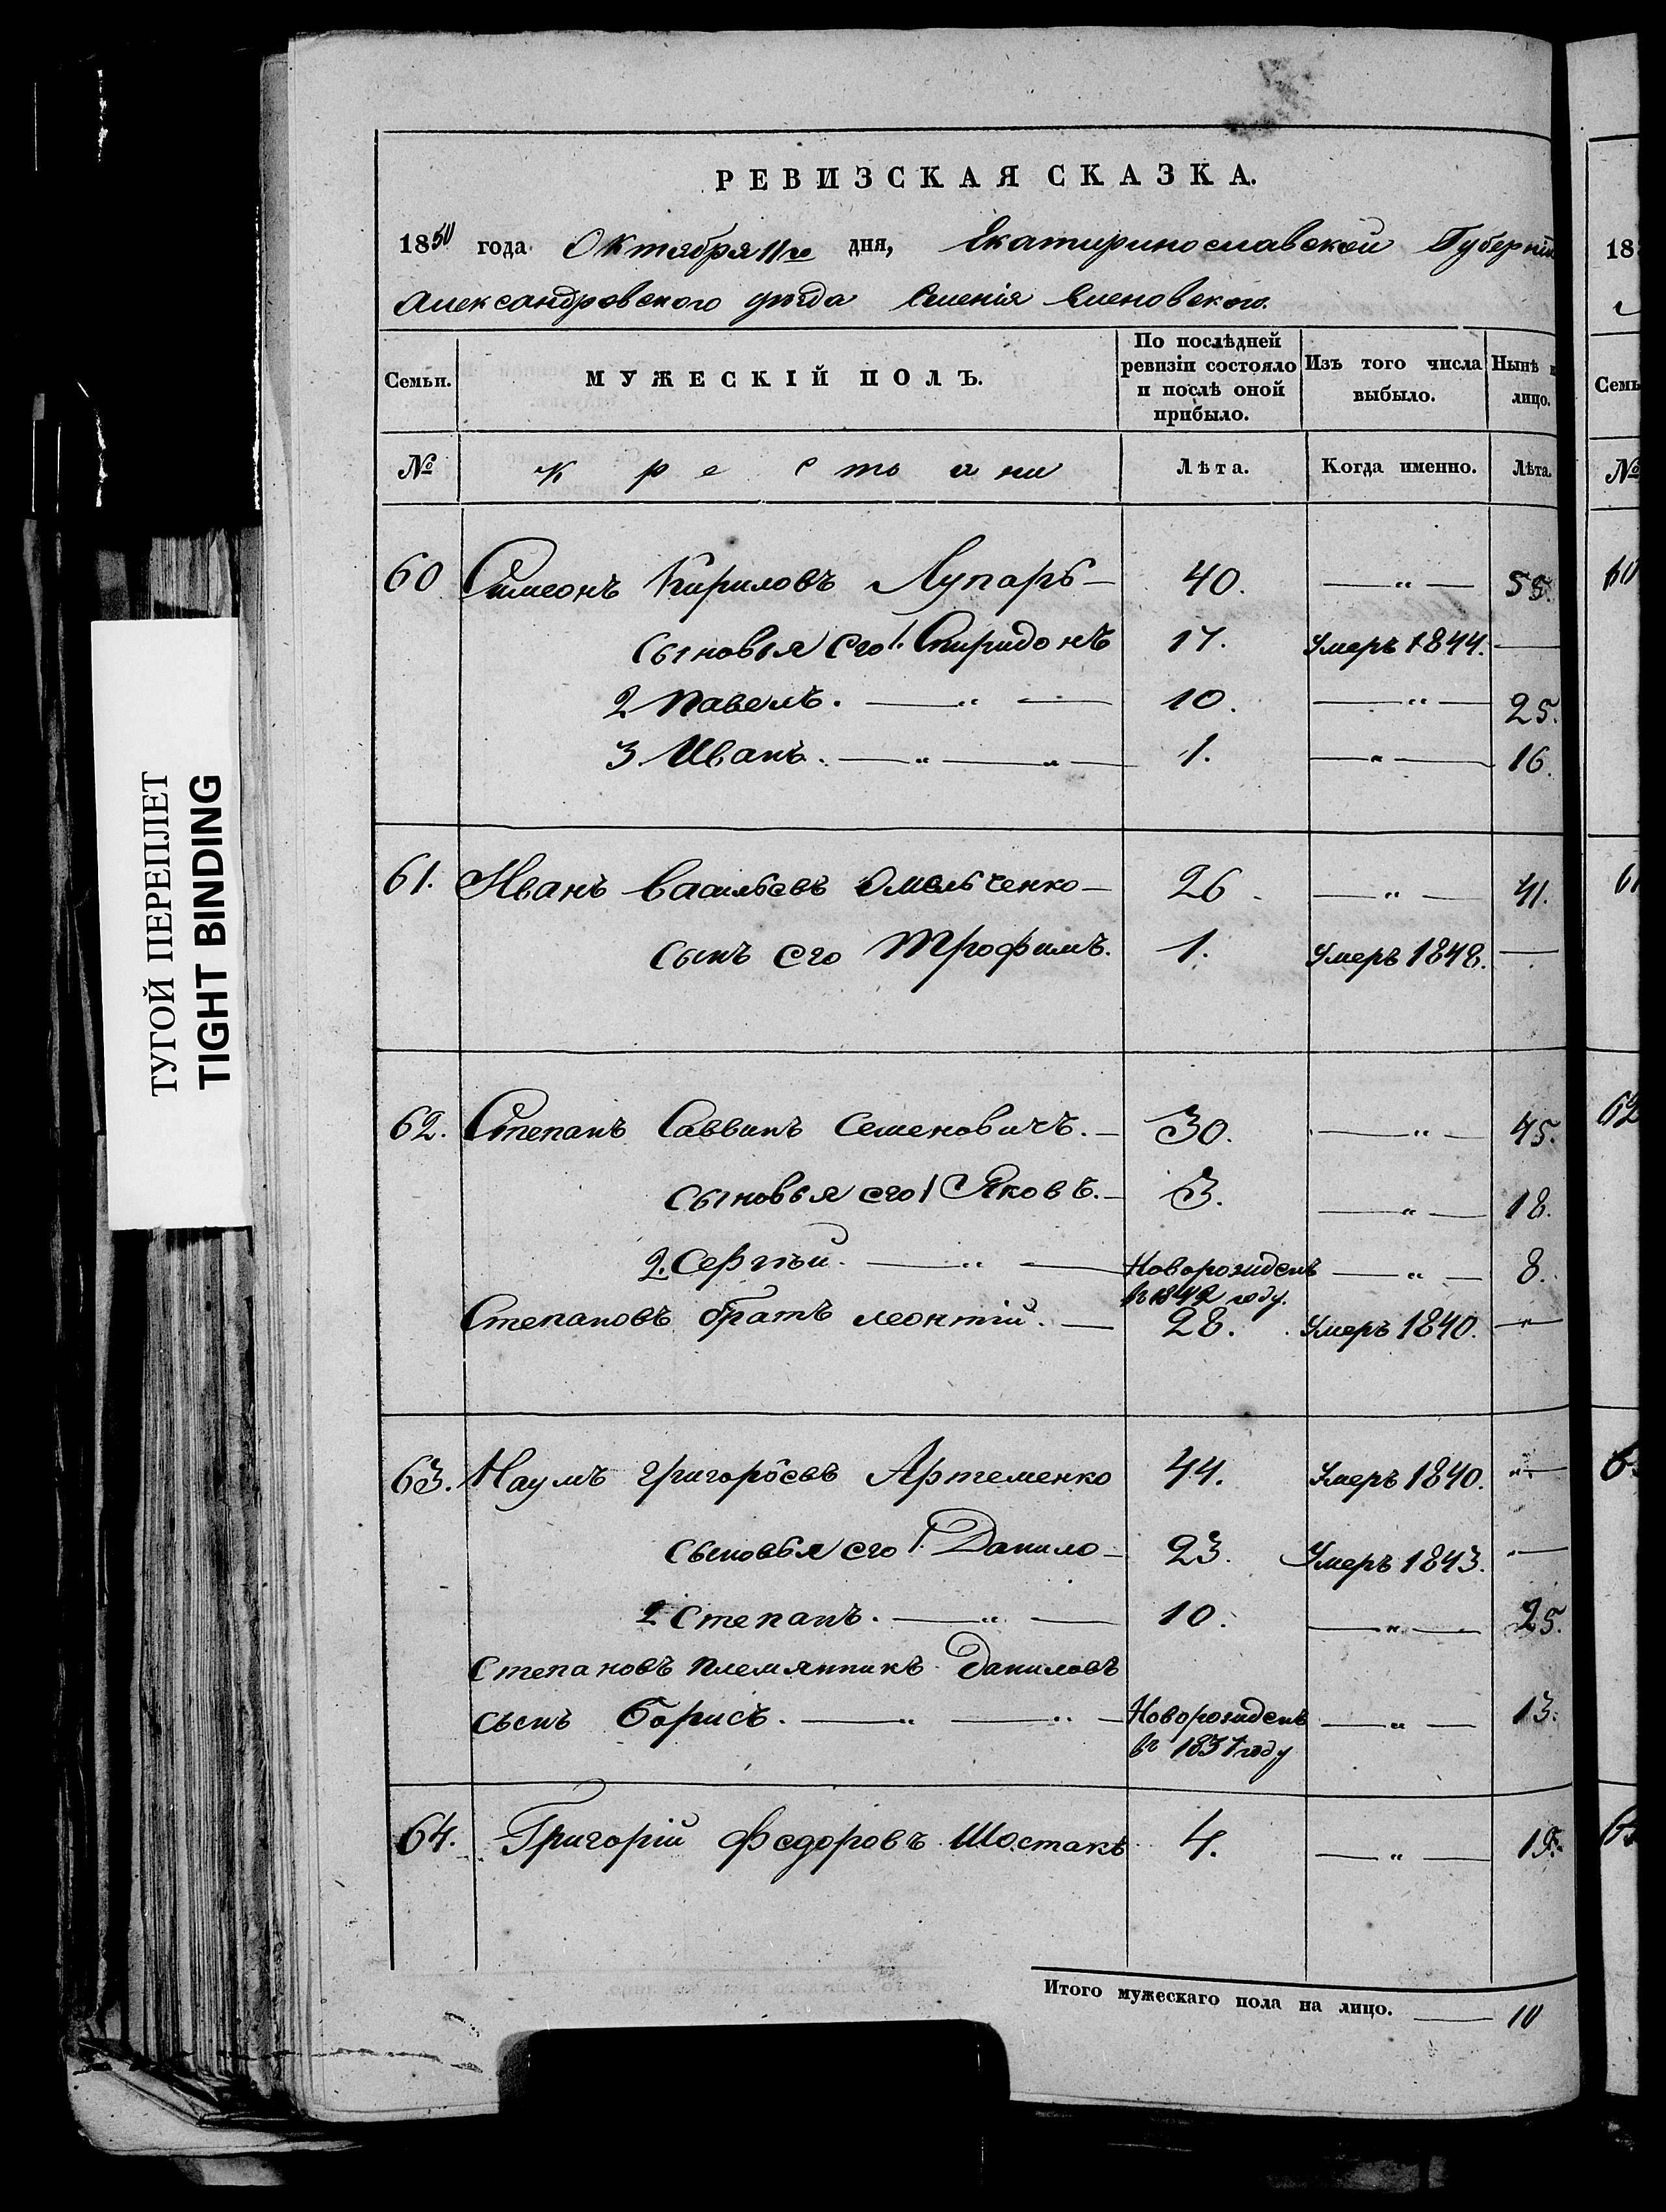 РЕВИЗСКАЯ СКАЗКА.
1850 года Октября 11го дня, Екатеринославской Губерніи
Александровского уѣзда Еленовского.
Семьи. МУЖЕСКІЙ ПОЛЪ. По послѣдней ревизіи состояло и послѣ оной прибыло. Изъ того числа выбыло. Нынѣ н лицо.
№ крестьяни Лѣта. Когда именно. Лѣта.
60 Симеонъ Кириловъ Лупарь — 40. — " — 55.
Сыновья его 1. Спиридонъ 17. Умеръ 1844. —
2 Павелъ. — " — 10. — " — 25.
3. Иванъ. — " — " — 1. — " — 16.
61. Иванъ Васильевъ Омельченко — 26 — " — 41.
сынъ его Трофимъ. 1. Умеръ 1848. —
62. Степанъ Саввинъ Семеновичъ. — 30. — " — 45.
сыновья его 1 Яковъ. — 3. — " — 18.
2. Сергѣй. — " — Новорожденъ — " — 8.
въ 1842 году.
Степановъ братъ Леонтій. — 28. Умеръ 1840. — " —
63. Наумъ Григорьевъ Артеменко 44. Умеръ 1840. " —
сыновья его 1. Данило — 23. Умеръ 1843. " —
2 Степанъ. — " — 10. — " — 25.
Степановъ племянникъ Даниловъ
сынъ Борисъ. — " — " — Новорожденъ — " — 13.
въ 1837 году
64. Григорій Федоровъ Шостакъ 4. — " — 19.
Итого мужескаго пола на лицо. — 10
ТУГОЙ ПЕРЕПЛЕТ
TIGHT BINDING
18
Семь
№
60
61
62
6
6